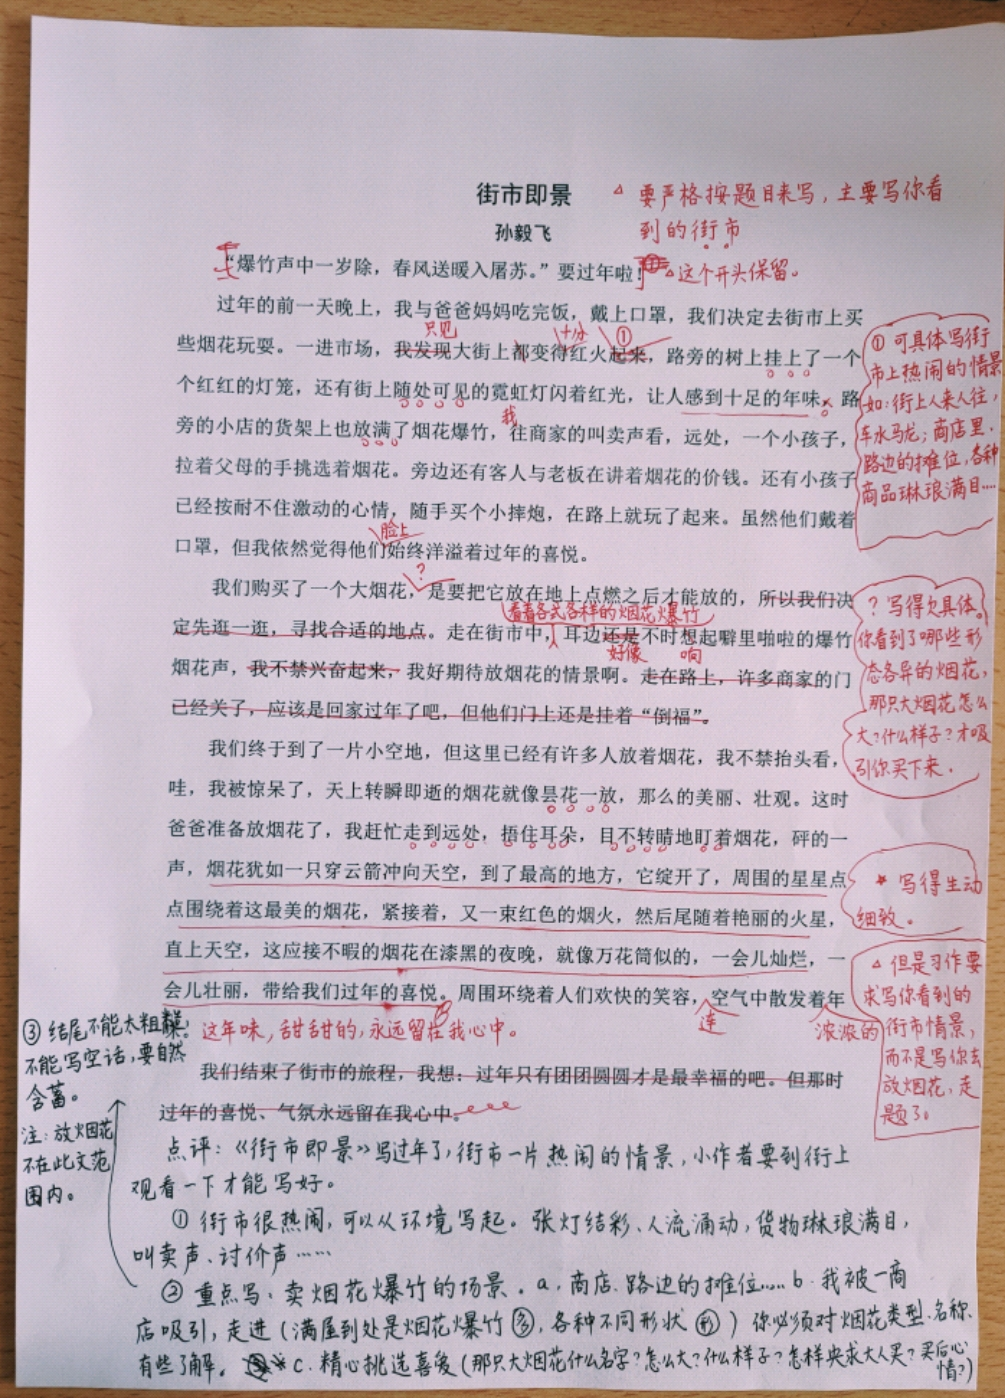 街市即景
△ 要严格按题目来写，主要写你看
到的街市
孙毅飞
“爆竹声中一岁除，春风送暖入屠苏。”要过年啦！
△这个开头保留。
过年的前一天晚上，我与爸爸妈妈吃完饭，戴上口罩，我们决定去街市上买
只见
十分
①
些烟花玩耍。一进市场，我发现大街上都变得红火起来，路旁的树上挂上了一个
个红红的灯笼，还有街上随处可见的霓虹灯闪着红光，让人感到十足的年味。路
我
旁的小店的货架上也放满了烟花爆竹，往商家的叫卖声看，远处，一个小孩子，
拉着父母的手挑选着烟花。旁边还有客人与老板在讲着烟花的价钱。还有小孩子
已经按耐不住激动的心情，随手买个小摔炮，在路上就玩了起来。虽然他们戴着
脸上
口罩，但我依然觉得他们始终洋溢着过年的喜悦。
① 可具体写街
市上热闹的情景
如：街上人来人往，
车水马龙；商店里、
路边的摊位，各种
商品琳琅满目……
？
我们购买了一个大烟花，是要把它放在地上点燃之后才能放的，所以我们决
看着各式各样的烟花爆竹
定先逛一逛，寻找合适的地点。走在街市中，耳边还是不时想起噼里啪啦的爆竹
好像
响
烟花声，我不禁兴奋起来，我好期待放烟花的情景啊。走在路上，许多商家的门
已经关了，应该是回家过年了吧，但他们门上还是挂着“倒福”。
？写得欠具体。
你看到了哪些形
态各异的烟花，
那只大烟花怎么
大？什么样子？才吸
引你买下来．
我们终于到了一片小空地，但这里已经有许多人放着烟花，我不禁抬头看，
哇，我被惊呆了，天上转瞬即逝的烟花就像昙花一放，那么的美丽、壮观。这时
爸爸准备放烟花了，我赶忙走到远处，捂住耳朵，目不转睛地盯着烟花，砰的一
声，烟花犹如一只穿云箭冲向天空，到了最高的地方，它绽开了，周围的星星点
点围绕着这最美的烟花，紧接着，又一束红色的烟火，然后尾随着艳丽的火星，
直上天空，这应接不暇的烟花在漆黑的夜晚，就像万花筒似的，一会儿灿烂，一
会儿壮丽，带给我们过年的喜悦。周围环绕着人们欢快的笑容，空气中散发着年
★ 写得生动
细致。
△ 但是习作要
求写你看到的
街市情景，
而不是写你去
放烟花，走
题了。
味。这年味，甜甜的，永远留在我心中。
连
浓浓的
我们结束了街市的旅程，我想：过年只有团团圆圆才是最幸福的吧。但那时
过年的喜悦、气氛永远留在我心中。
③ 结尾不能太粗糙。
不能写空话，要自然
含蓄。
注：放烟花
不在此文范
围内。
点评：《街市即景》写过年了，街市一片热闹的情景，小作者要到街上
观看一下才能写好。
① 街市很热闹，可以从环境写起。张灯结彩、人流涌动，货物琳琅满目，
叫卖声、讨价声……
② 重点写：卖烟花爆竹的场景。a．商店、路边的摊位…… b．我被一商
店吸引，走进（满屋到处是烟花爆竹多，各种不同形状形）你必须对烟花类型、名称
有些了解。 c．精心挑选喜爱（那只大烟花什么名字？怎么大？什么样子？怎样央求大人买？买后心
情？）